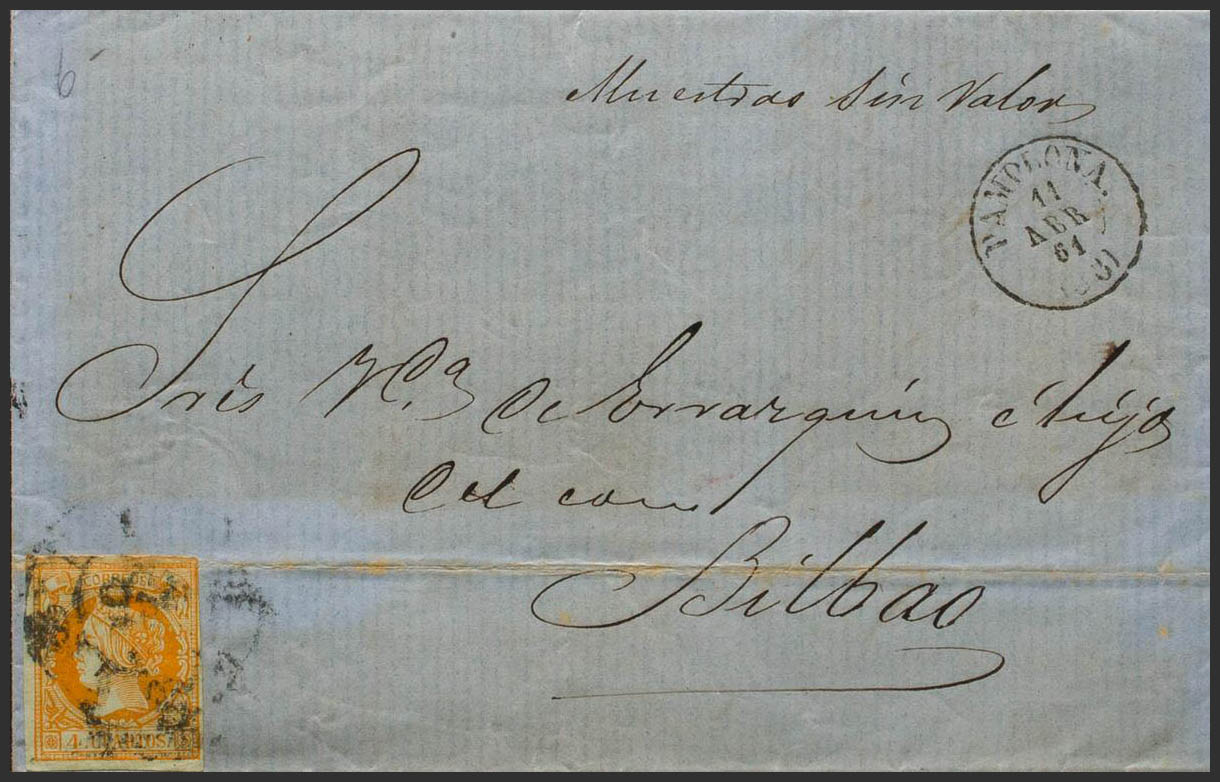 6
Muestras Sin Valor
PAMPLONA.
11
ABR
61
Sres Vda de Sorrarquin é hijo
Del com
Bilbao
CORREOS
4 CUARTOS